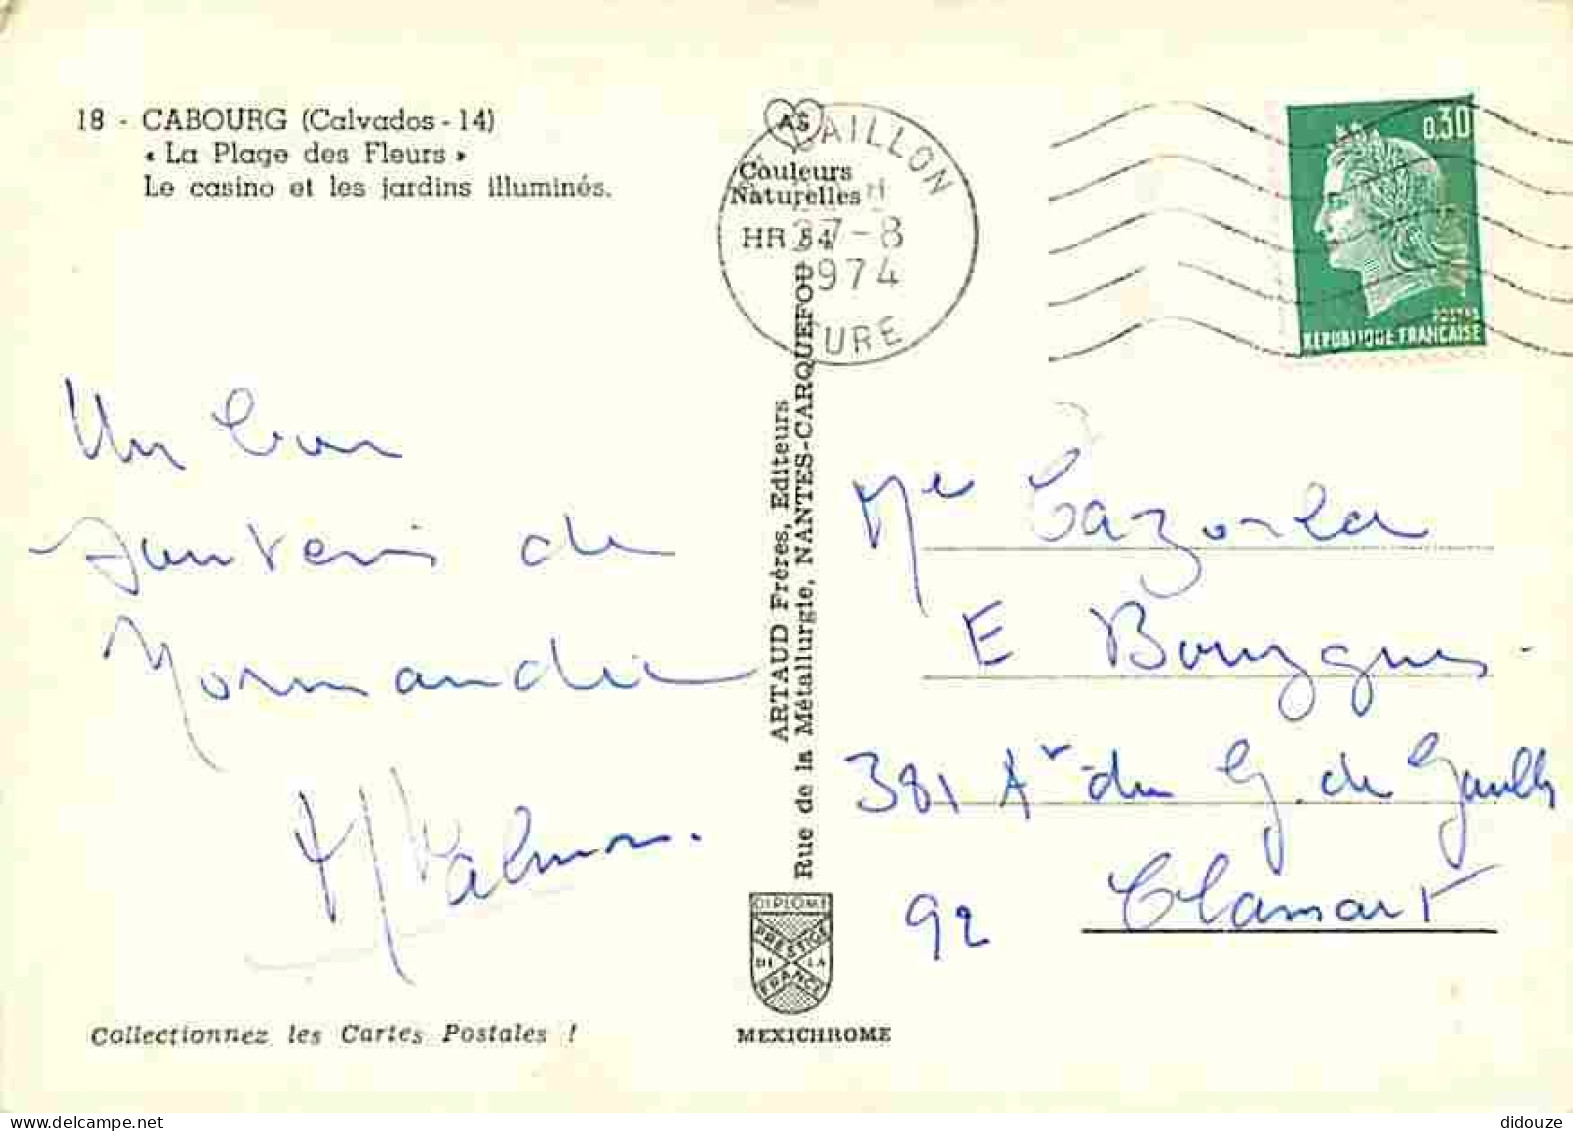 18 - CABOURG (Calvados - 14)
« La Plage des Fleurs »
Le casino et les jardins illuminés.
AS
Couleurs
Naturelles
HR
GAILLON
27-8
1974
EURE
0,30
POSTES
REPUBLIQUE FRANCAISE
Un bon
souvenir de
Normandie
ARTAUD Frères, Editeurs
Rue de la Métallurgie, NANTES-CARQUEFOU
Cazorla
E
381 Av du G. de Gaulle
92 Clamart
DIPLOME
PRESTIGE
DE LA
FRANCE
MEXICHROME
Collectionnez les Cartes Postales !
didouze